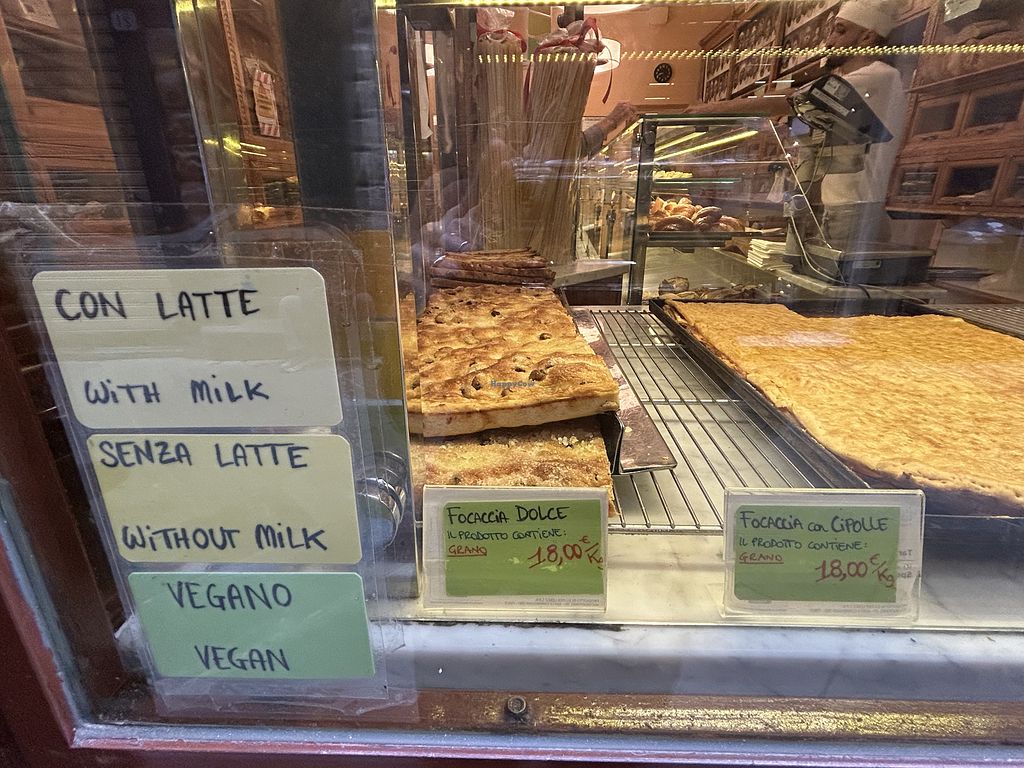 CON LATTE
WITH MILK
SENZA LATTE
WITHOUT MILK
VEGANO
VEGAN
FOCACCIA DOLCE
IL PRODOTTO CONTIENE:
GRANO
18,00 €/Kg
FOCACCIA con CIPOLLE
IL PRODOTTO CONTIENE:
GRANO
18,00 €/Kg
HappyCow